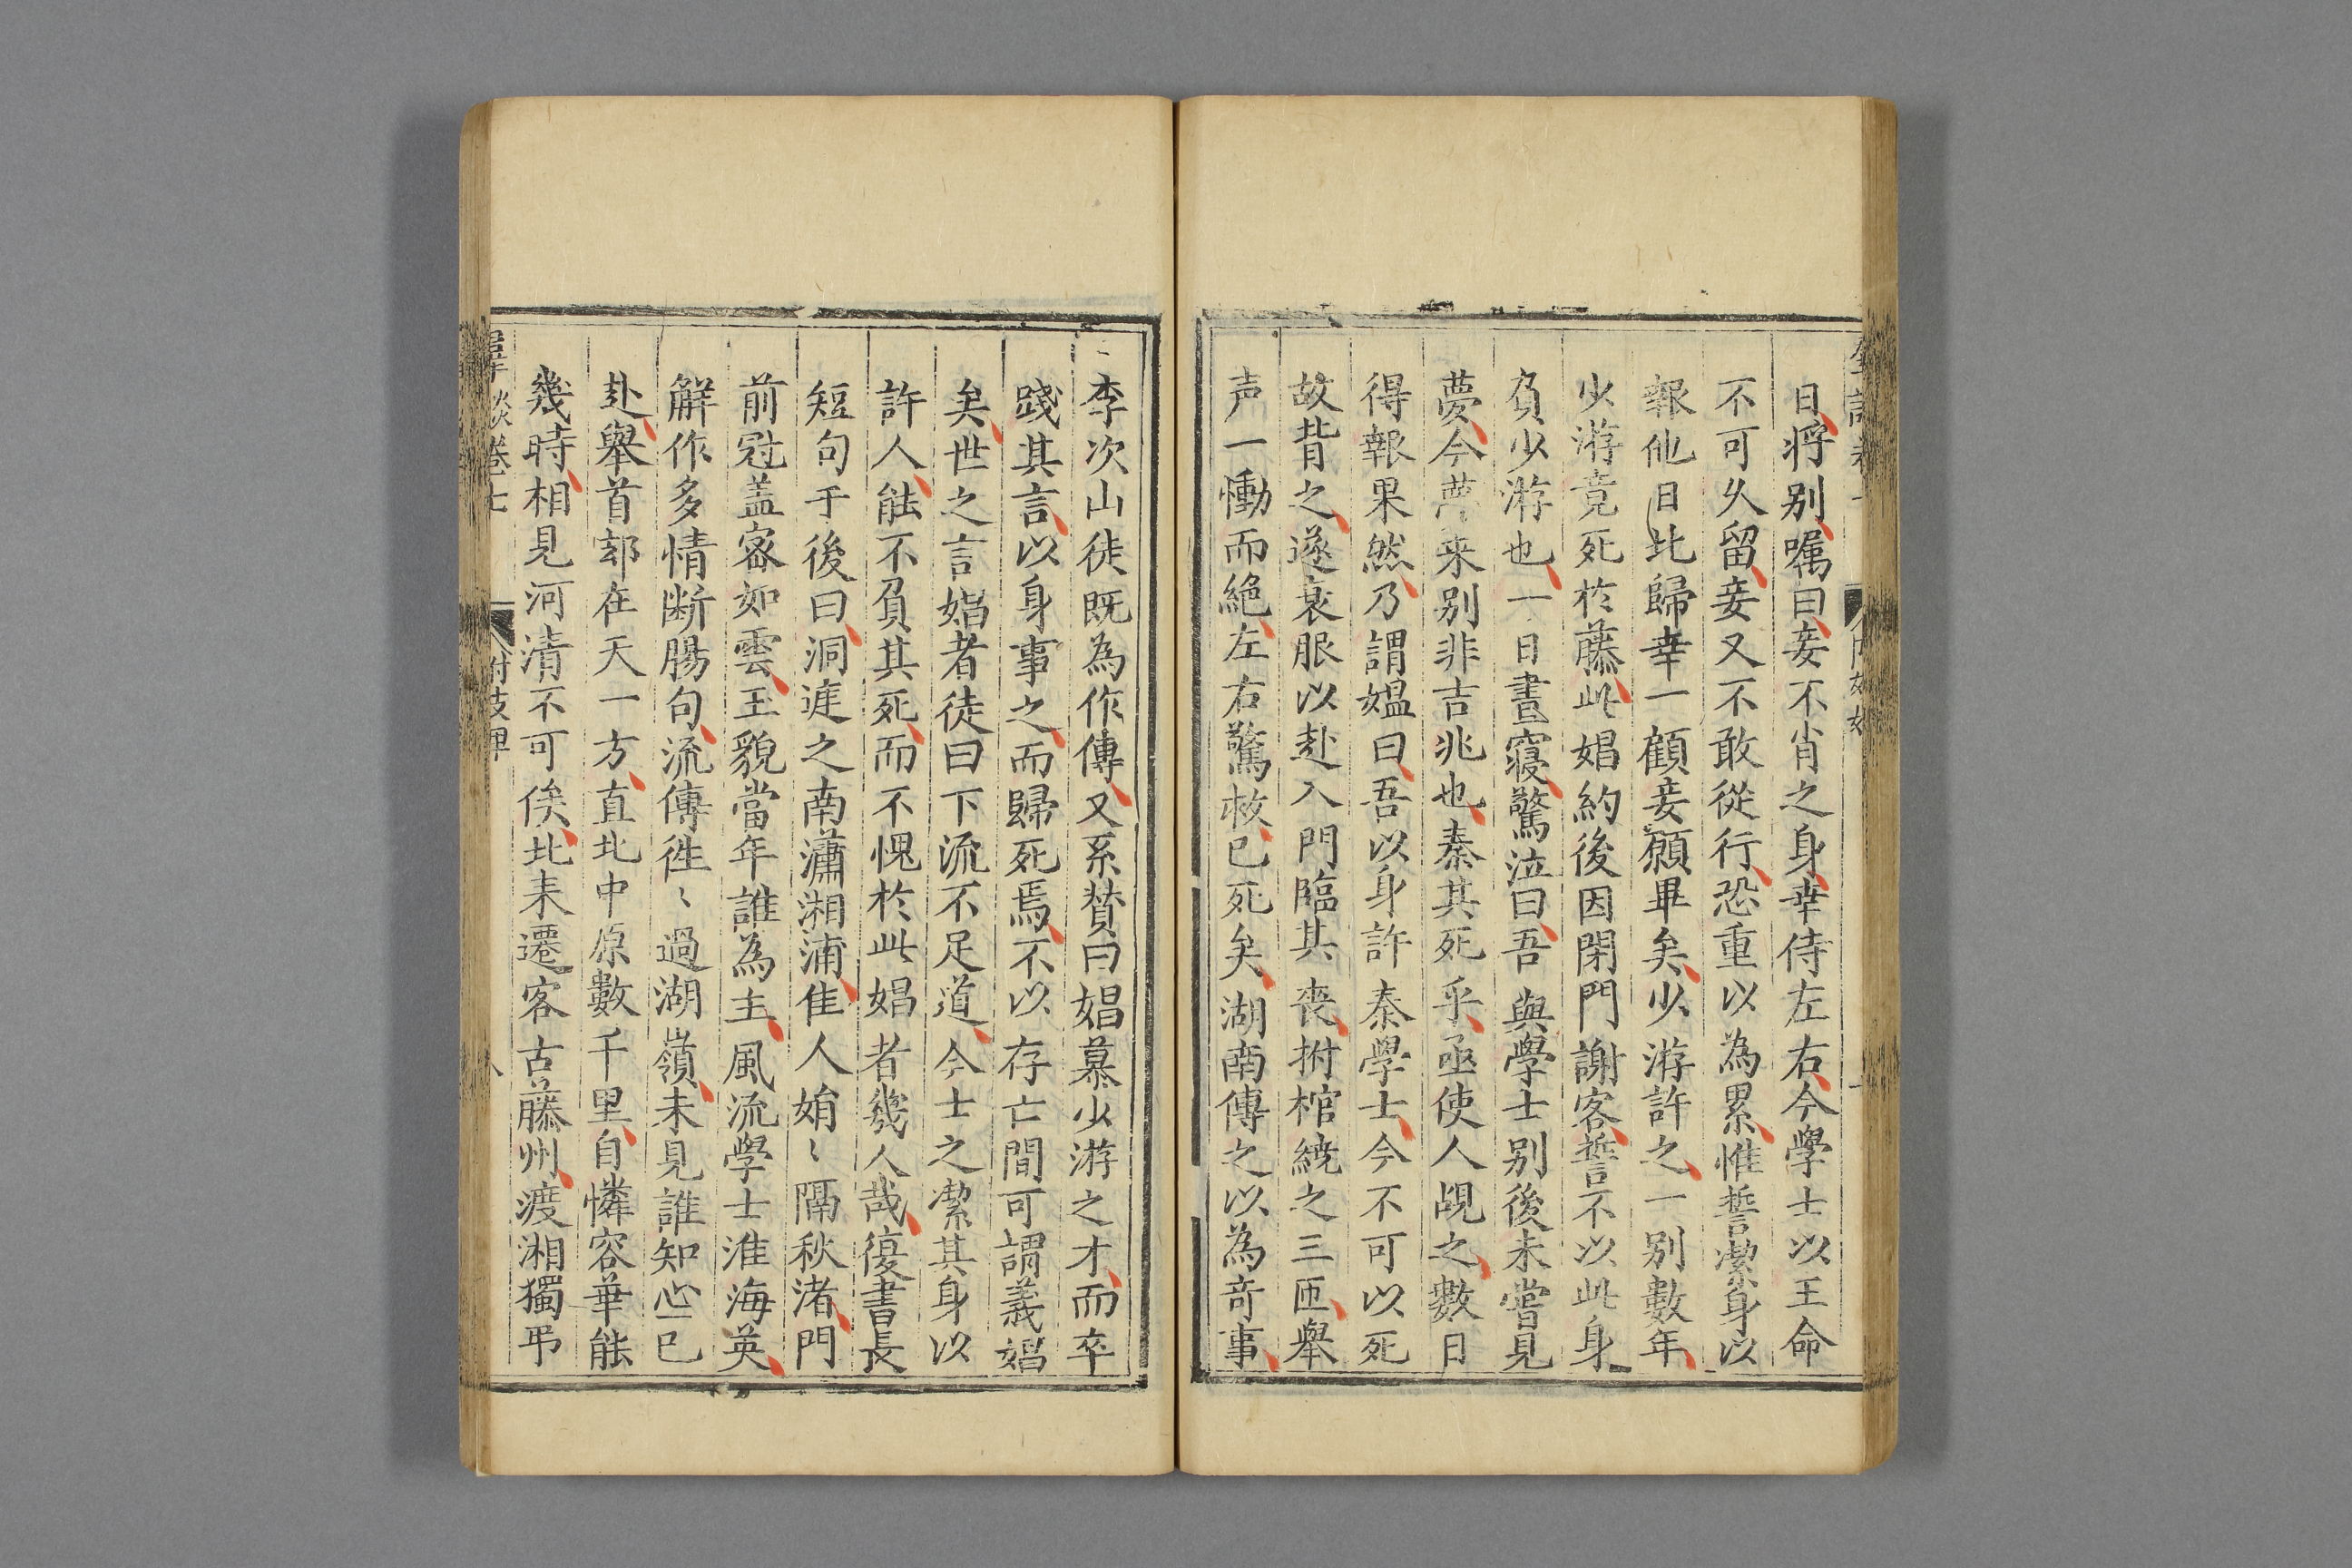 日將别嘱曰妾不肖之身幸侍左右今學士以王命
不可乆留妾又不敢從行恐重以為累惟誓潔身以
報他日北歸幸一顧妾願畢矣少游許之一别數年
少游竟死於藤此娼約後因閉門謝客誓不以此身
負少游也一日晝寢驚泣曰吾與學士别後未嘗見
夢今夢来别非吉兆也秦其死乎亟使人覘之數日
得報果然乃謂媼曰吾以身許秦學士今不可以死
故背之遂衰服以赴入門臨其喪拊棺繞之三匝舉
声一慟而絶左右驚救已死矣湖南傳之以為奇事
李次山徒既為作傳又系賛曰娼慕少游之才而卒
踐其言以身事之而歸死焉不以存亡間可謂義娼
矣世之言娼者徒曰下流不足道今士之潔其身以
許人能不負其死而不愧於此娼者幾人哉復書長
短句于後曰洞庭之南瀟湘浦佳人娟〻隔秋渚門
前冠盖宻如雲玉貌當年誰為主風流學士淮海英
解作多情断腸句流傳徃〻過湖嶺未見誰知心已
赴舉首郄在天一方直北中原數千里自憐容華能
幾時相見河清不可俟北来遷客古藤州渡湘獨弔
卷七
附妓婢